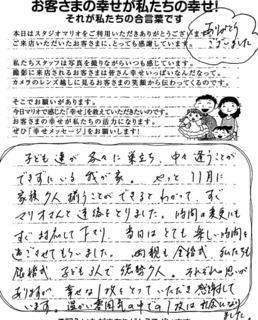 お客さまの幸せが私たちの幸せ!
それが私たちの合言葉です
本日はスタジオマリオをご利用いただきありがとうございます。
ご来店いただいたお客さまに、とっても感謝しています。
ありがとう
ございました
私たちスタッフは写真を撮りながらいつも感じています。
撮影に来店されるお客さまは皆さん幸せいっぱいなんだなって。
カメラのレンズ越しに見るお客さまの笑顔から伝わってくるのです。
そこでお願いがあります。
今日マリオで感じた「幸せ」を教えていただきたいのです。
お客さまの幸せが私たちの活力になります。
ぜひ「幸せメッセージ」をお願いします!
子ども達が 各々に 巣立ち、中々 逢うことが
できずにいる 我が家。 やっと 11月に
家族 9人 揃うことが できると わかって、すぐ
マリオさんと 連絡を とりました。時間の変更にも
すぐ 対応して 下さり、当日は とても 楽しい 時間を
過ごさせてもらいました。 両親も 金婚式 私たちも
銀婚式 子ども 3人で 総勢 9人。 それぞれの 思いが
ありますが、幸せな 1枚を とって いただき 感謝して
います。温かい 雰囲気の 中での 1枚は 宝になり
ました。